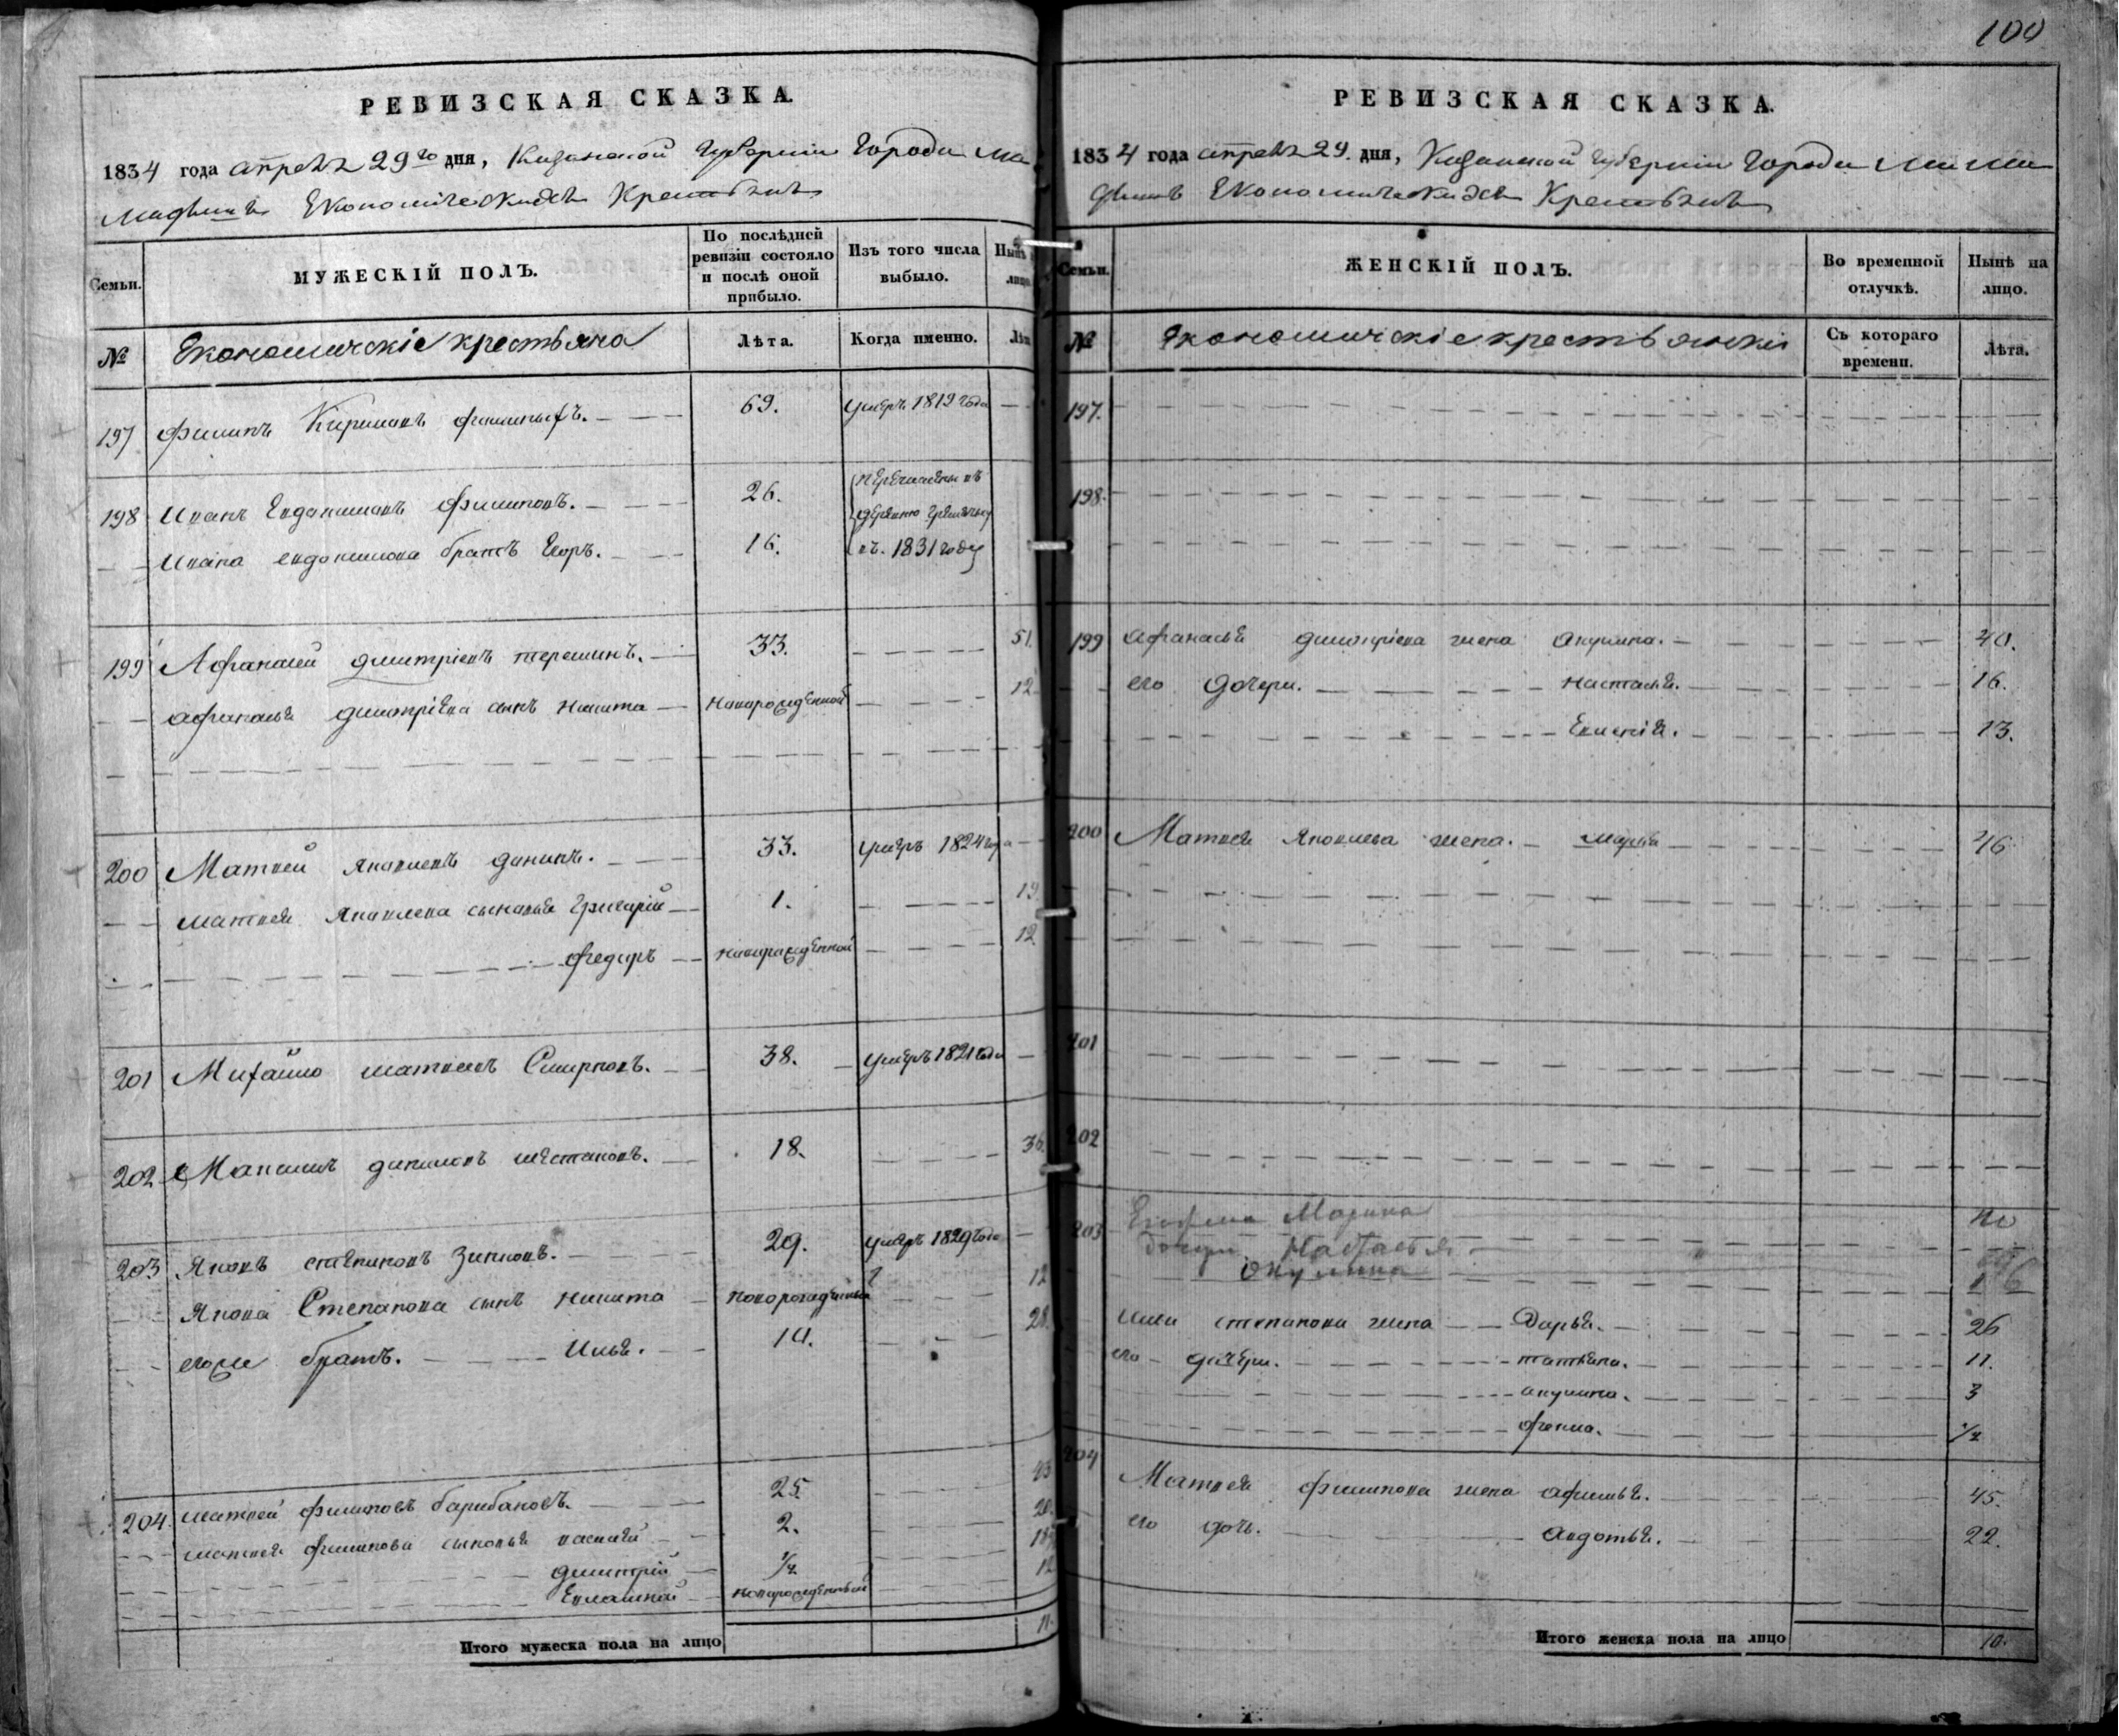 РЕВИЗСКАЯ СКАЗКА.
1834 года апреля 29го дня, Казанской Губернии Города Ма
мадышъ Економическихъ Крестьянъ
Семьи.
МУЖЕСКІЙ ПОЛЪ.
По послѣдней ревизіи состояло и послѣ оной прибыло.
Изъ того числа выбыло.
Нынѣ
лицо.
№
Економическіе крестьяна
Лѣта.
Когда именно.
Лѣт
197 Филипъ Филипыхъ. 69. умеръ 1819 года
198 Иванъ Евдокимовъ Филиповъ. 26. перечислены въ
деревню
Ивана евдокимова братъ Егоръ. 16. въ 1831 году
199 Афанасей дмитріевъ терешинъ. 33. 51.
афанасья дмитріева сынъ никита новорожденной 12
200 Матвей яковлевъ данинъ. 33. умеръ 1824 года
матвея яковлева сыновья Григорій 1. 19
Федоръ новорожденной 12
201 Михайло матвеевъ Смирновъ. 38. умеръ 1821 года
202 Максимъ даниловъ шестаковъ. 18. 36.
203 Яковъ степановъ Зиновъ. 29. умеръ 1829 года
Якова Степанова сынъ никита новорожденный 12
егоже братъ. Илья. 14. 28.
204. матвей филиповъ барабановъ. 25. 43
матвея филипова сыновья василей 2. 20.
дмитрій ½ 18½
Евлампей новорожденной 12
Итого мужеска пола на лицо 11.
100
РЕВИЗСКАЯ СКАЗКА.
1834 года апреля 29. дня, Казанской Губерніи Города Мама
дышъ Економическихъ Крестьянъ
Семьи.
ЖЕНСКІЙ ПОЛЪ.
Во временной отлучкѣ.
Нынѣ на лицо.
№
Економическіе крестьянскія
Съ котораго времени.
Лѣта.
197.
198.
199 афанасья дмитріева жена акулина. 40.
его дочери. настасья. 16.
13.
200 Матвея Яковлева жена. марья 46
201
202
203 Марина 40
дочери Настасья
Окулина 16
Ильи степанова жена Дарья. 26
его дочери. татьяна. 11.
акулина. 3
фекла. ½
204 Матвея филипова жена афимья. 45.
его дочь. авдотья. 22.
Итого женска пола на лицо 10.